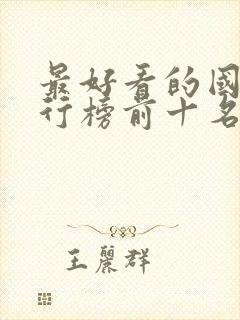 最好看的國
行榜前十名
王麗群